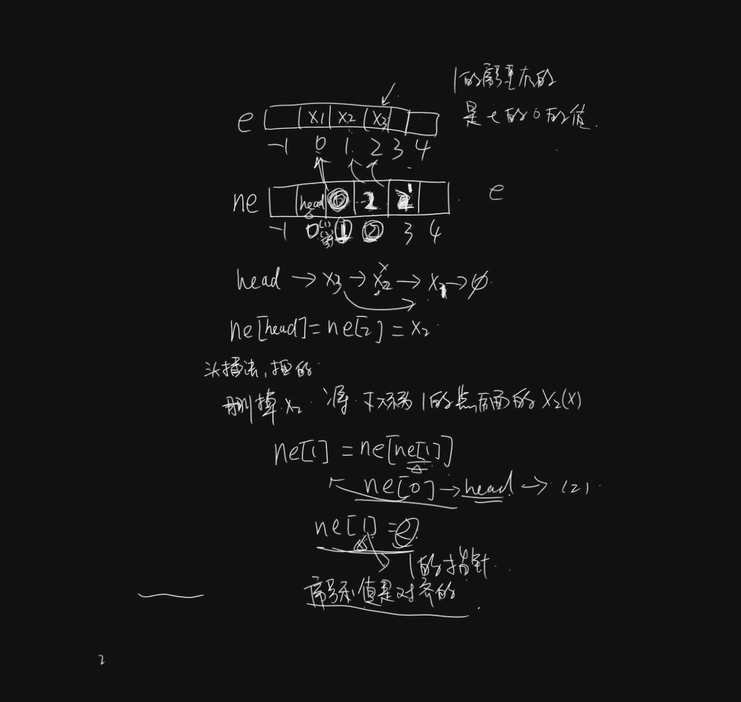 1的
是e的0的值.
e x1 x2 x3
-1 0 1 2 3 4
ne head 0 1 2
e
-1 0 1 2 3 4
head → x3 → x2 → x1 → ∅
ne[head]=ne[2]=x2
头插法,
删掉 x2 1的 后面的 x2(x)
ne[1] = ne[ne[1]]
ne[0] → head → (2).
ne[1] = e
1的指针..
序号和值是对齐的.
2